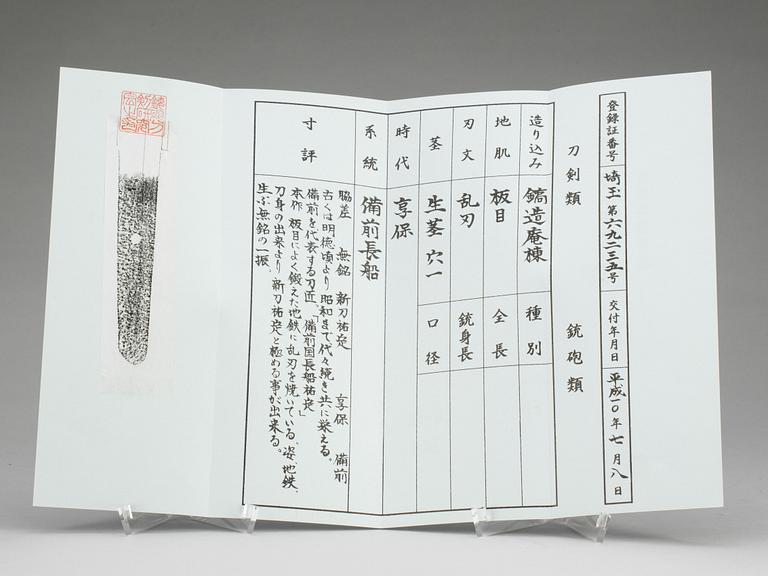 登録証番号 埼玉 第六九二三五号 交付年月日 平成一〇年七月八日
刀剣類 銃砲類
造り込み 鎬造庵棟 種別
地肌 板目 全長
刃文 乱刃 銃身長
茎 生茎 穴一 口径
時代 享保
系統 備前長船
寸評
脇差 無銘 新刀祐定 享保 備前
古くは明徳頃より昭和まで代々続き共に栄える。
備前を代表する刀匠。「備前国長船祐定」
本作 板目によく鍛えた地鉄に乱刃を焼いている。姿、地鉄、
刀身の出来より新刀祐定と極める事が出来る。
生ぶ無銘の一振。